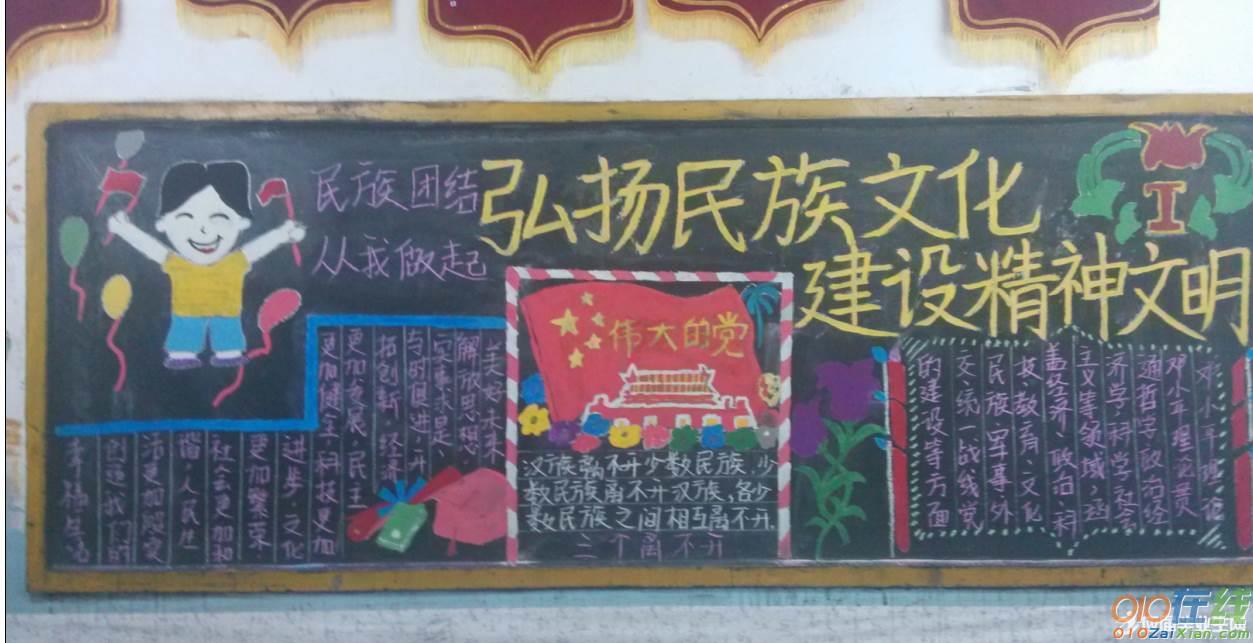 民族团结
从我做起
弘扬民族文化
建设精神文明
美好未来
解放思想、
实事求是、
与时俱进、开
拓创新,经济
更加发展、民主
更加健全、科技更加
进步、文化
更加繁荣
社会更加和
谐、人民生
活更加殷实
创造我们的
伟大的党
汉族离不开少数民族,少
数民族离不开汉族,各少
数民族之间相互离不开.
三个离不开
邓小平理论
邓小平理论贯
通哲学、政治经
济学、科学社会
主义等领域,涵
盖经济、政治、科
技、教育、文化
民族、军事、外
交、统一战线、党
的建设等方面
010在线
010ZaiXian.com